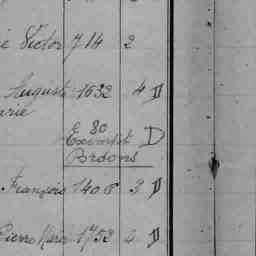 ie Victor 714 2
Auguste 1632 4 D
arie
E 80
Exempt D
Ordons
François 1408 3 D
Pierre Marie 1752 4 D